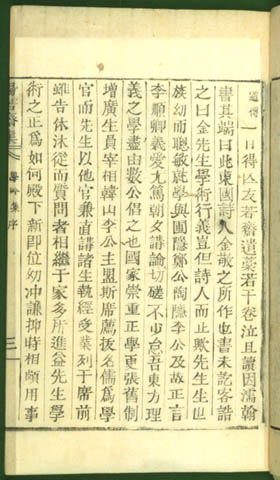 道傳一日得亡友若齋遺藁若干卷泣且讀因濡翰
書其端曰此東國詩人金敬之所作也書未訖客詰
之曰金先生學術行義豈但詩人而止歟先生生世
族幼而聰敏就學與圃隱鄭公陶隱李公及故正言
李順卿義愛尤篤朝夕講論切磋不少怠吾東方理
義之學盡由數公倡之也國家崇重正學更張舊制
增廣生員宰相韓山李公主盟斯席薦拔名儒爲學
官而先生以他官兼直講諸生執經受業列于席前
雖告休沐從而質問者相繼于家多所進益先生學
術之正爲如何殿下新卽位幼冲謙抑時相頗用事
學吟集序 三